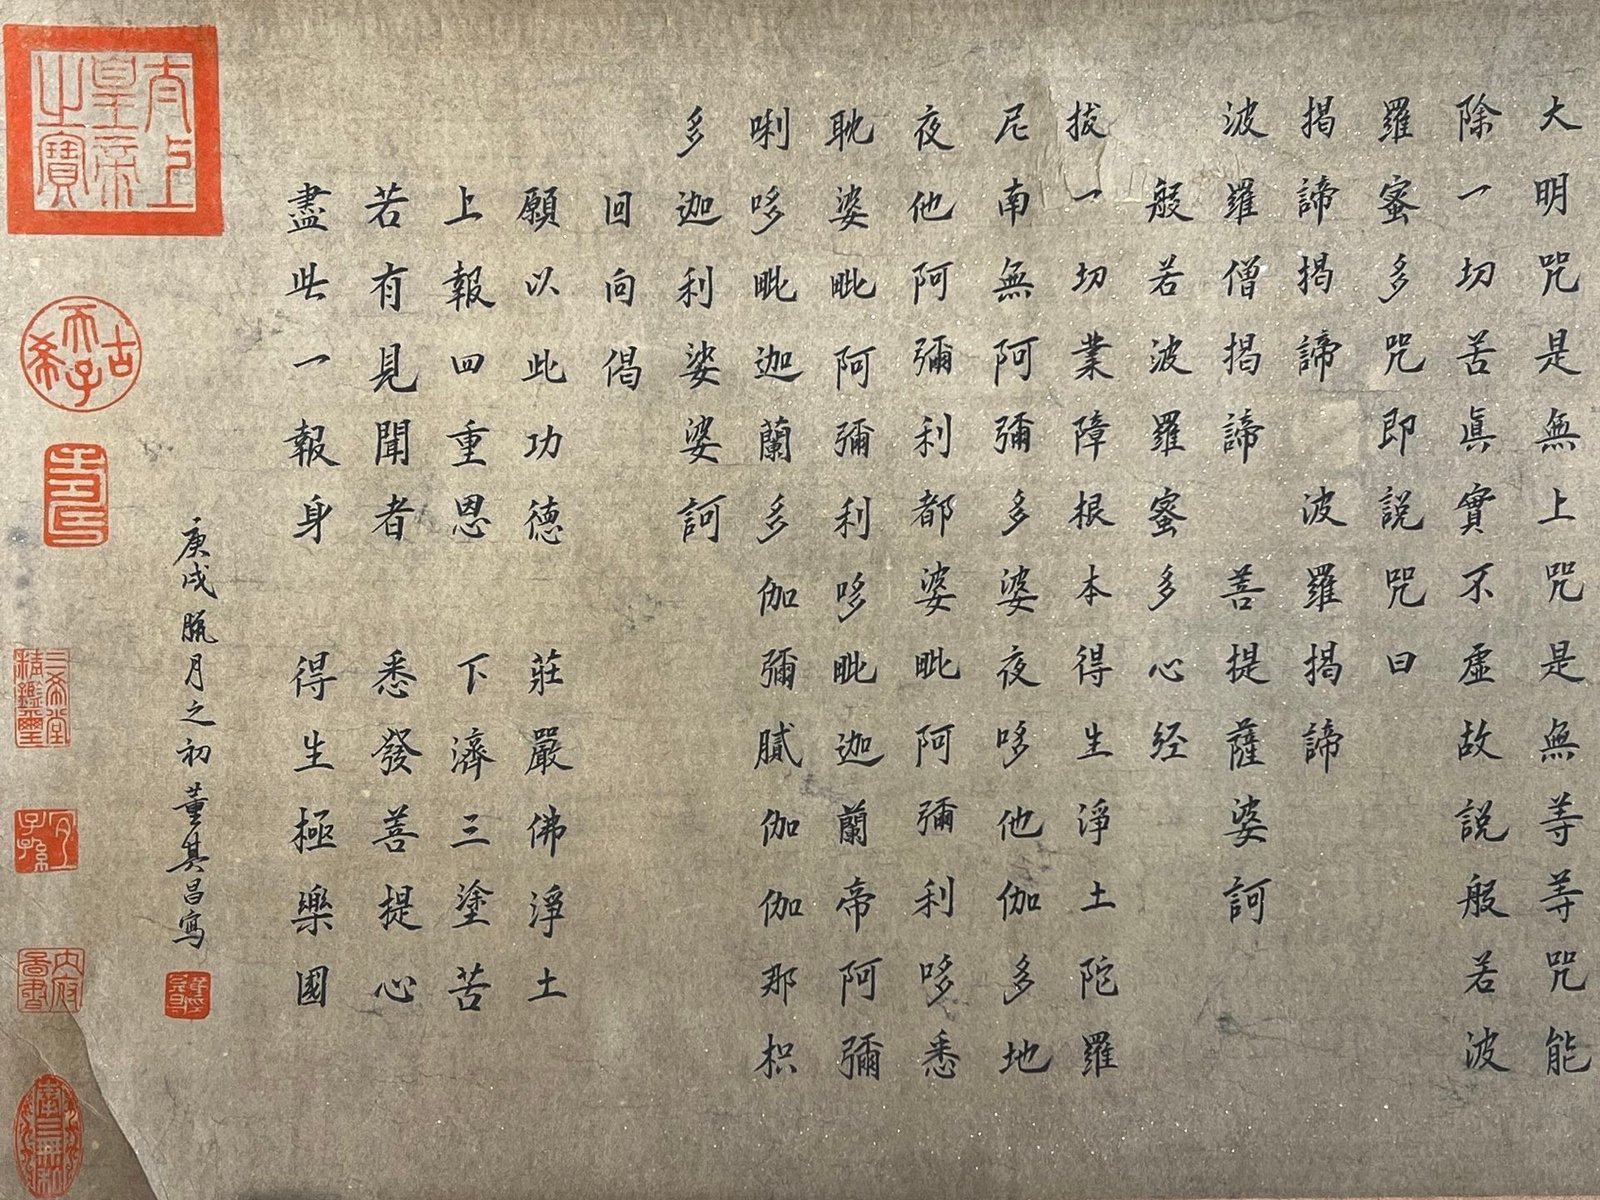 大明咒是無上咒是無等等咒能
除一切苦眞實不虛故說般若波
羅蜜多咒即說咒曰
揭諦揭諦 波羅揭諦
波羅僧揭諦 菩提薩婆訶
般若波羅蜜多心经
拔一切業障根本得生淨土陀羅
尼南無阿彌多婆夜哆他伽多地
夜他阿彌利都婆毗阿彌利哆悉
耽婆毗阿彌利哆毗迦蘭帝阿彌
唎哆毗迦蘭多伽彌膩伽伽那枳
多迦利娑婆訶
回向偈
願以此功德 莊嚴佛淨土
上報四重恩 下濟三塗苦
若有見聞者 悉發菩提心
盡此一報身 得生極樂國
庚戌臘月之初董其昌寫
太上皇帝之寶
古希天子
壽
三希堂精鑑璽
宜子孫
內府書